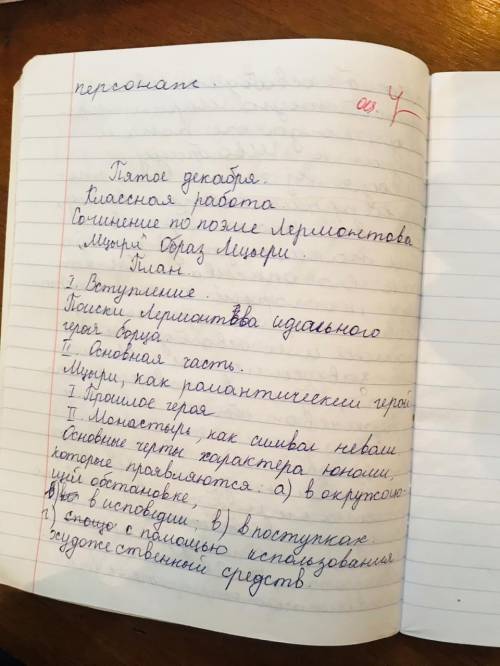 персонаж.
оц. 4
Пятое декабря.
Классная работа
Сочинение по поэме Лермонтова
"Мцыри" Образ Мцыри.
План.
I. Вступление.
Поиски Лермонтова идеального
героя борца.
II. Основная часть.
Мцыри, как романтический герой
I Прошлое героя
II. Монастырь, как символ неволи
Основные черты характера юноши,
которые проявляются: а) в окружаю-
щей обстановке,
б) в исповедии; в) в поступках
г) с помощью использования
художественный средств.